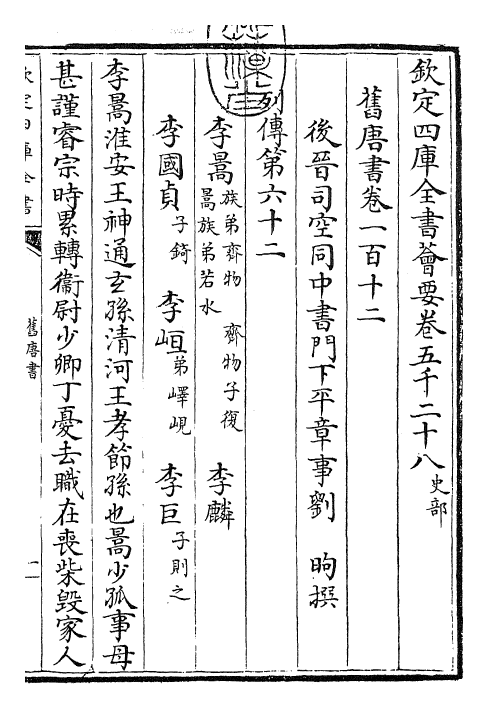 欽定四庫全書薈要卷五千二十八 史部
舊唐書卷一百十二
後晉司空同中書門下平章事劉 昫撰
列傳第六十二
李暠 族弟齊物 齊物子復 暠族弟若水 李麟
李國貞 子錡 李峘 弟嶧峴 李巨 子則之
李暠淮安王神通玄孫清河王孝節孫也暠少孤事母
甚謹睿宗時累轉衞尉少卿丁憂去職在喪柴毀家人
欽定四庫全書
舊唐書
一